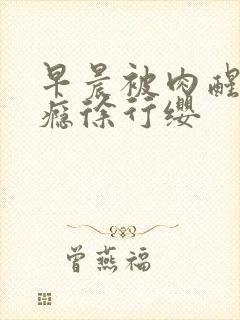 早晨被肉醒
瘾徐行缨
曾燕福